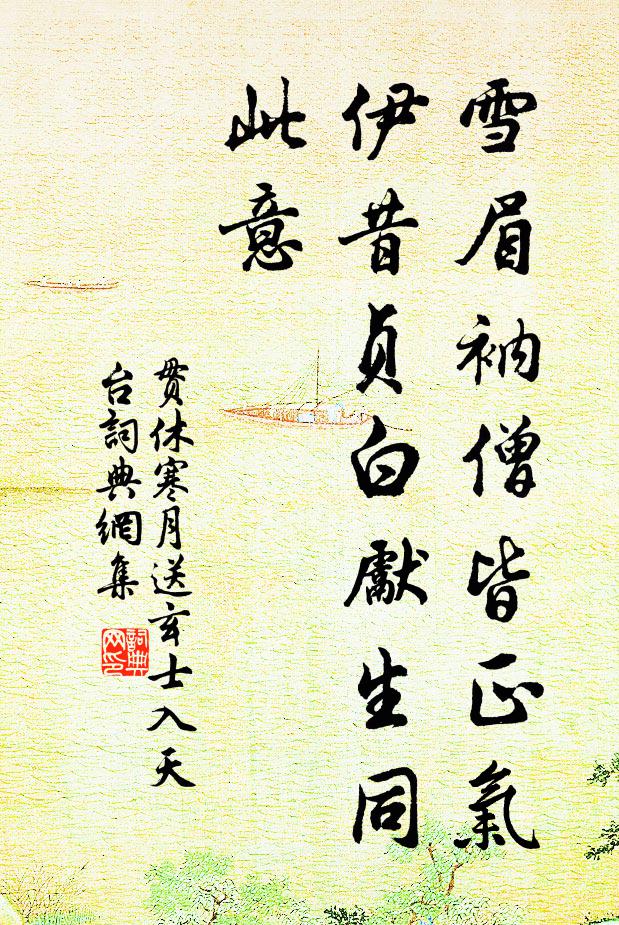 雪眉衲僧皆正氣
伊昔貞白獻生同
此意
貫休寒月送玄士入天
台詞典網集
詞典
网印